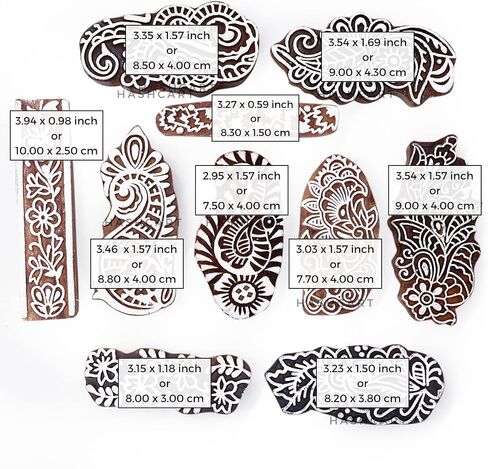 3.35 x 1.57 inch
or
8.50 x 4.00 cm
HASHCART
3.54 x 1.69 inch
or
9.00 x 4.30 cm
HASHCART
3.27 x 0.59 inch
or
8.30 x 1.50 cm
3.94 x 0.98 inch
or
10.00 x 2.50 cm
2.95 x 1.57 inch
or
7.50 x 4.00 cm
3.54 x 1.57 inch
or
9.00 x 4.00 cm
3.46 x 1.57 inch
or
8.80 x 4.00 cm
3.03 x 1.57 inch
or
7.70 x 4.00 cm
HASHCART
3.15 x 1.18 inch
or
8.00 x 3.00 cm
3.23 x 1.50 inch
or
8.20 x 3.80 cm
HASHCART